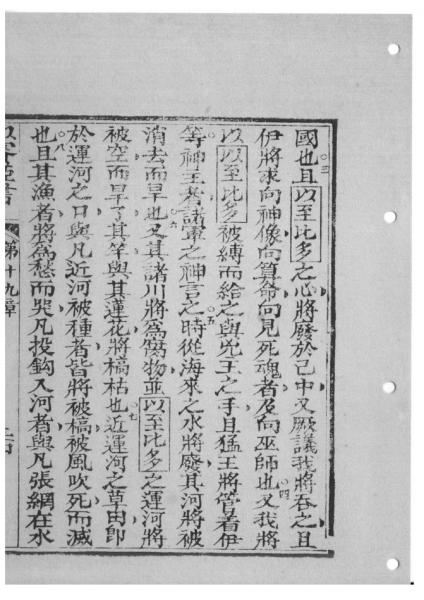 國也且以至比多之心將廢於己中又厥議我將吞之且
伊將求向神像向算命向見死魂者及向巫師也四又我將
以以至比多被縛而給之與兇王之手且猛王將管着伊
等神主者諸軍之神言之五時從海來之水將廢其河將被
消去而旱也六又其諸川將為腐物並以至比多之運河將
被空而旱了其竿與其蓮花將槁枯也七近運河之草田即
於運河之口與凡近河被種者皆將被槁被風吹死而滅
也八且其漁者將為愁而哭凡投鈎入河者與凡張網在水
第十九章